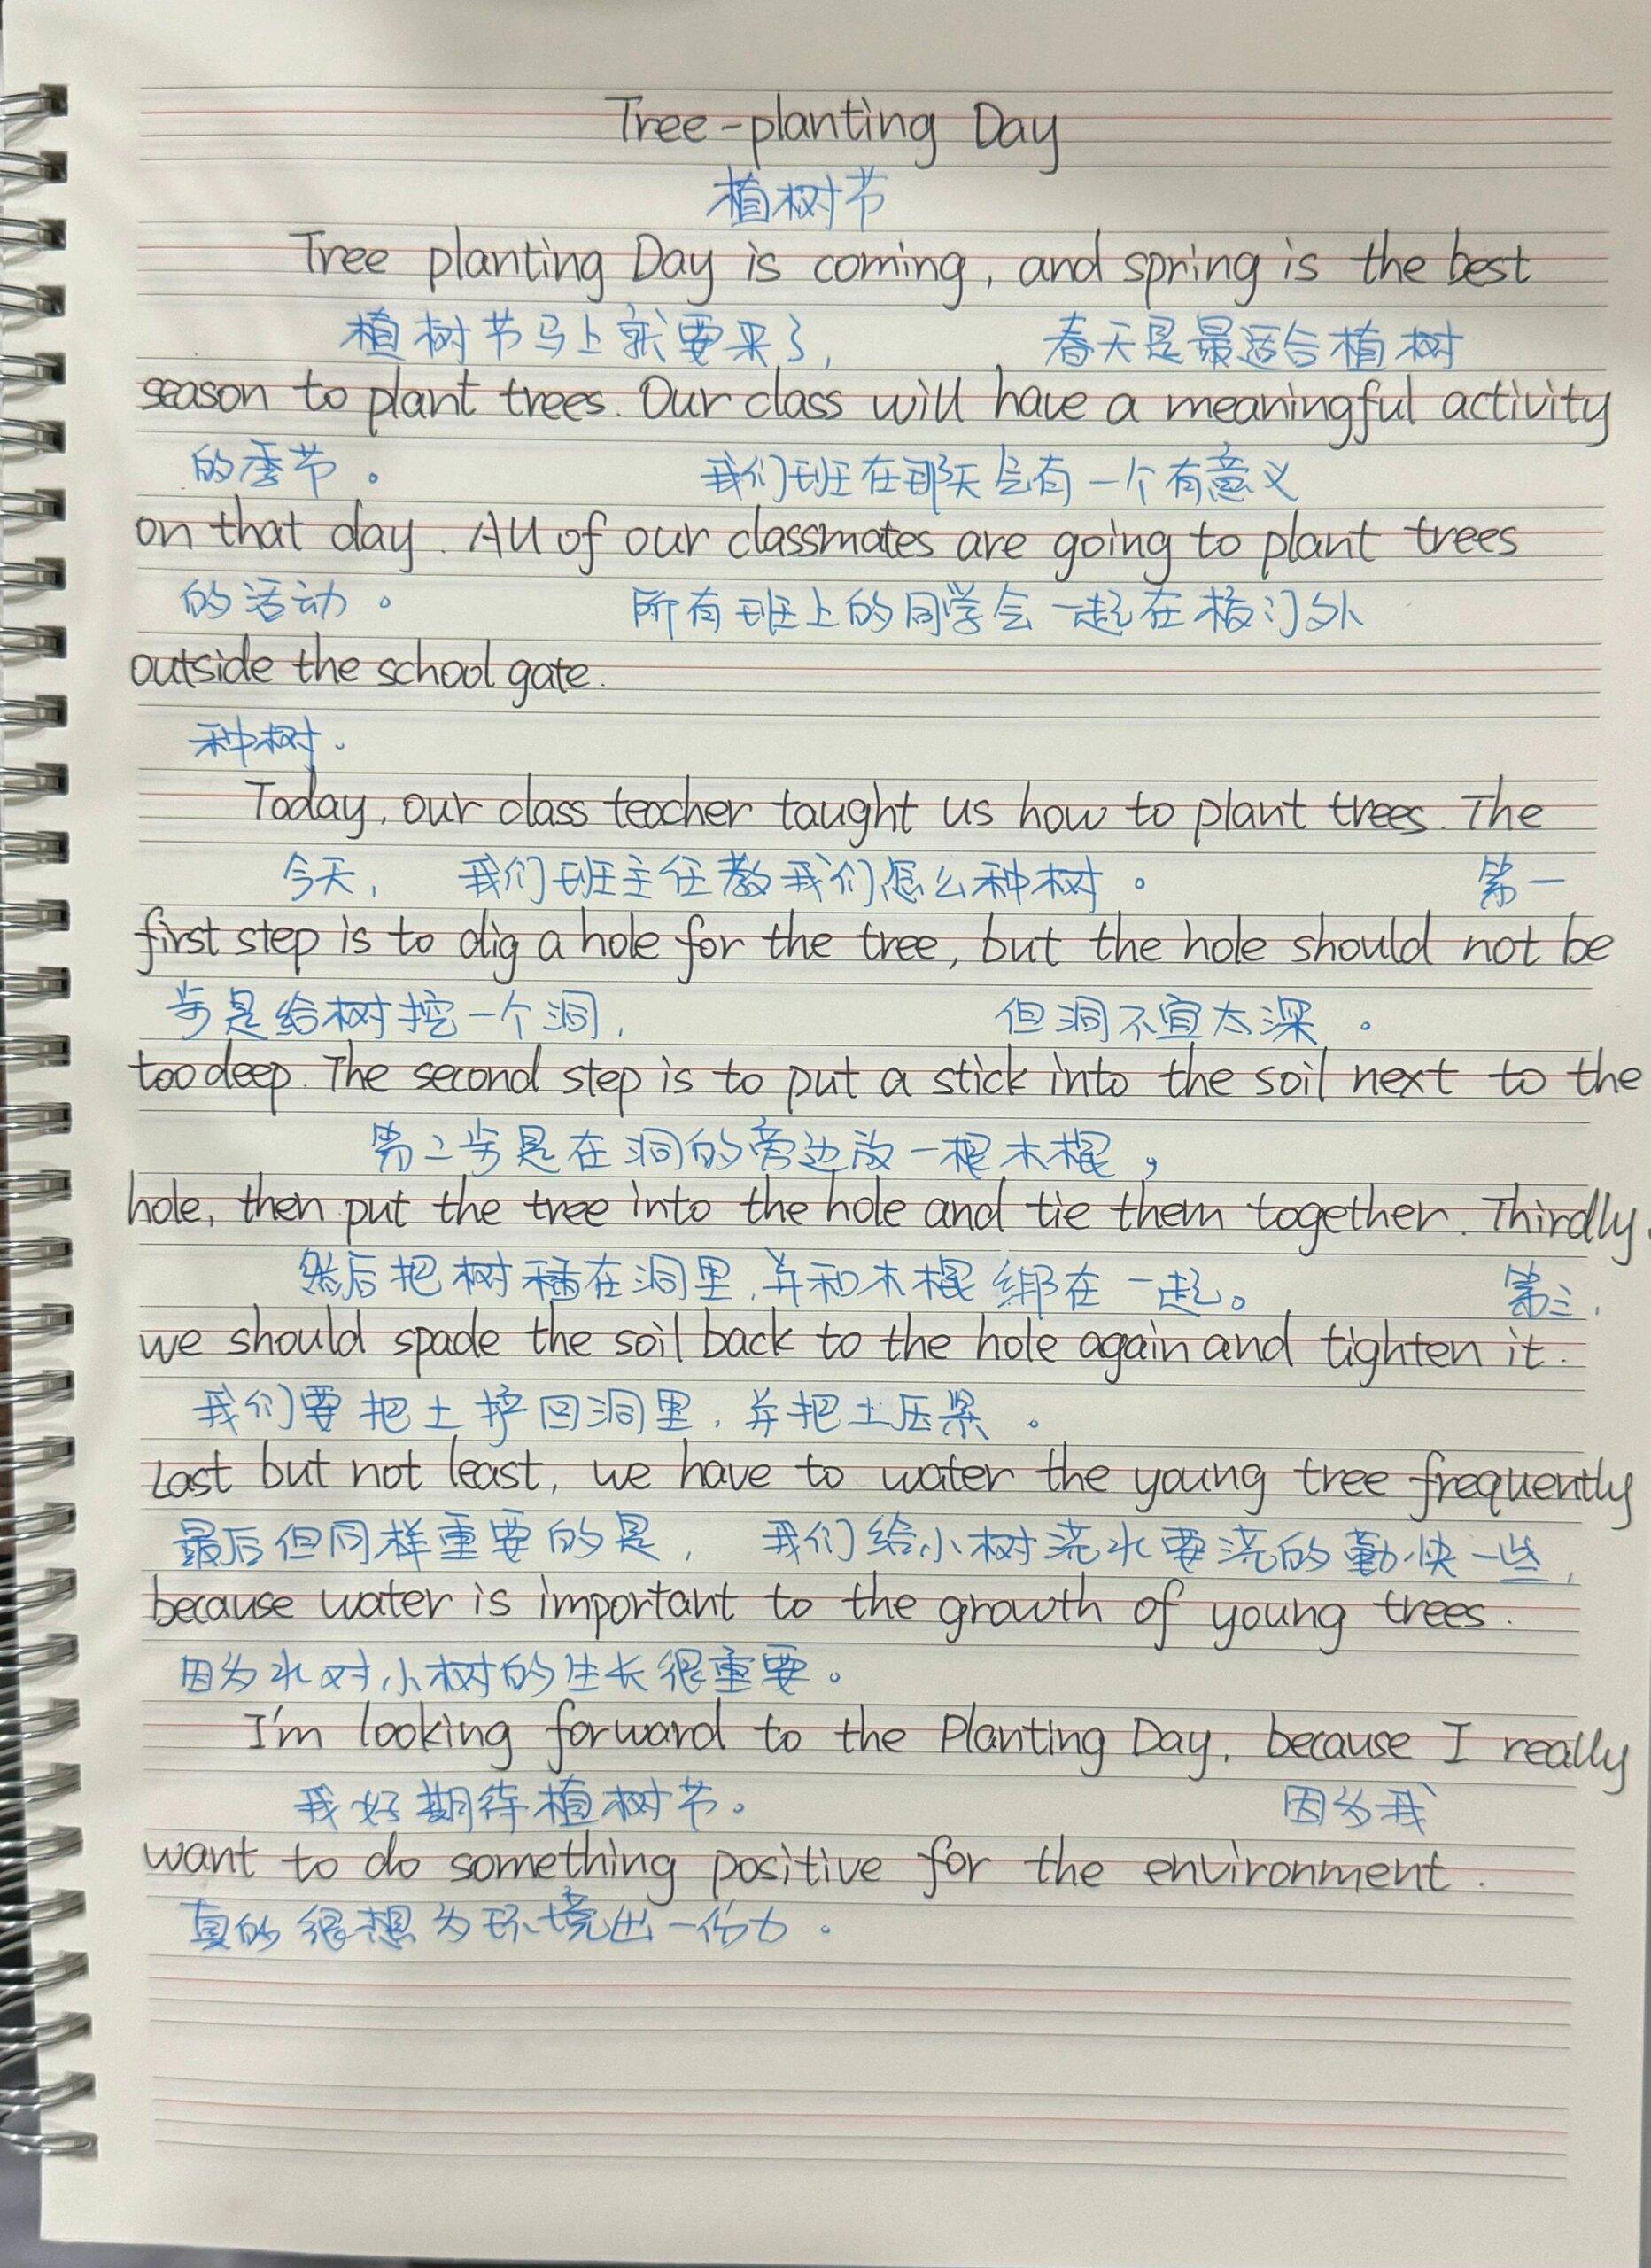 Tree-planting Day
植树节
Tree planting Day is coming, and spring is the best
植树节马上就要来了, 春天是最适合植树
season to plant trees. Our class will have a meaningful activity
的季节。 我们班在那天会有一个有意义
on that day. All of our classmates are going to plant trees
的活动。 所有班上的同学会一起在校门外
outside the school gate.
种树.
Today, our class teacher taught us how to plant trees. The
今天, 我们班主任教我们怎么种树。 第一
first step is to dig a hole for the tree, but the hole should not be
步是给树挖一个洞, 但洞不宜太深。
too deep. The second step is to put a stick into the soil next to the
第二步是在洞的旁边放一根木棍,
hole, then put the tree into the hole and tie them together. Thirdly,
然后把树种在洞里,并和木棍绑在一起。 第三,
we should spade the soil back to the hole again and tighten it.
我们要把土铲回洞里,并把土压紧。
Last but not least, we have to water the young tree frequently
最后但同样重要的是, 我们给小树浇水要浇的勤快一些,
because water is important to the growth of young trees.
因为水对小树的生长很重要。
I'm looking forward to the Planting Day, because I really
我好期待植树节。 因为我
want to do something positive for the environment.
真的很想为环境出一份力。